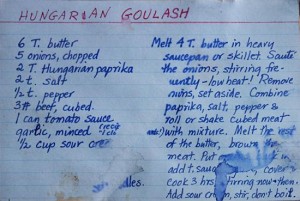 HUNGARIAN GOULASH
6 T. butter
5 onions, chopped
2 T. Hungarian paprika
2 t. salt
1/2 t. pepper
3# beef, cubed.
1 can tomato sauce
garlic, minced
1/2 cup sour
Melt 4 T. butter in heavy
saucepan or skillet. Sauté
the onions, stirring fre-
quently - low heat! Remove
onions, set aside. Combine
paprika, salt, pepper &
roll or shake cubed meat
with mixture. Melt the rest
of the butter, brown the
meat. Put back in
add t. sauce, cover &
Cook 3 hrs, stirring now & then.
Add sour cream, stir, don't boil.